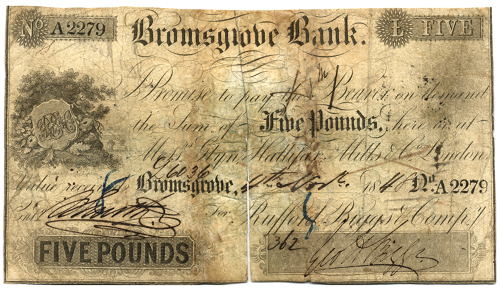 No A2279 Bromsgrove Bank. £ FIVE
I Promise to pay the Bearer on Demand
the Sum of Five Pounds, here or at
Messrs Glyn Hallifax Mills & Co London
Value received Bromsgrove, 4th Novr. 18 No A2279
For Rufford Biggs & Compy
FIVE POUNDS 362 Geo Biggs